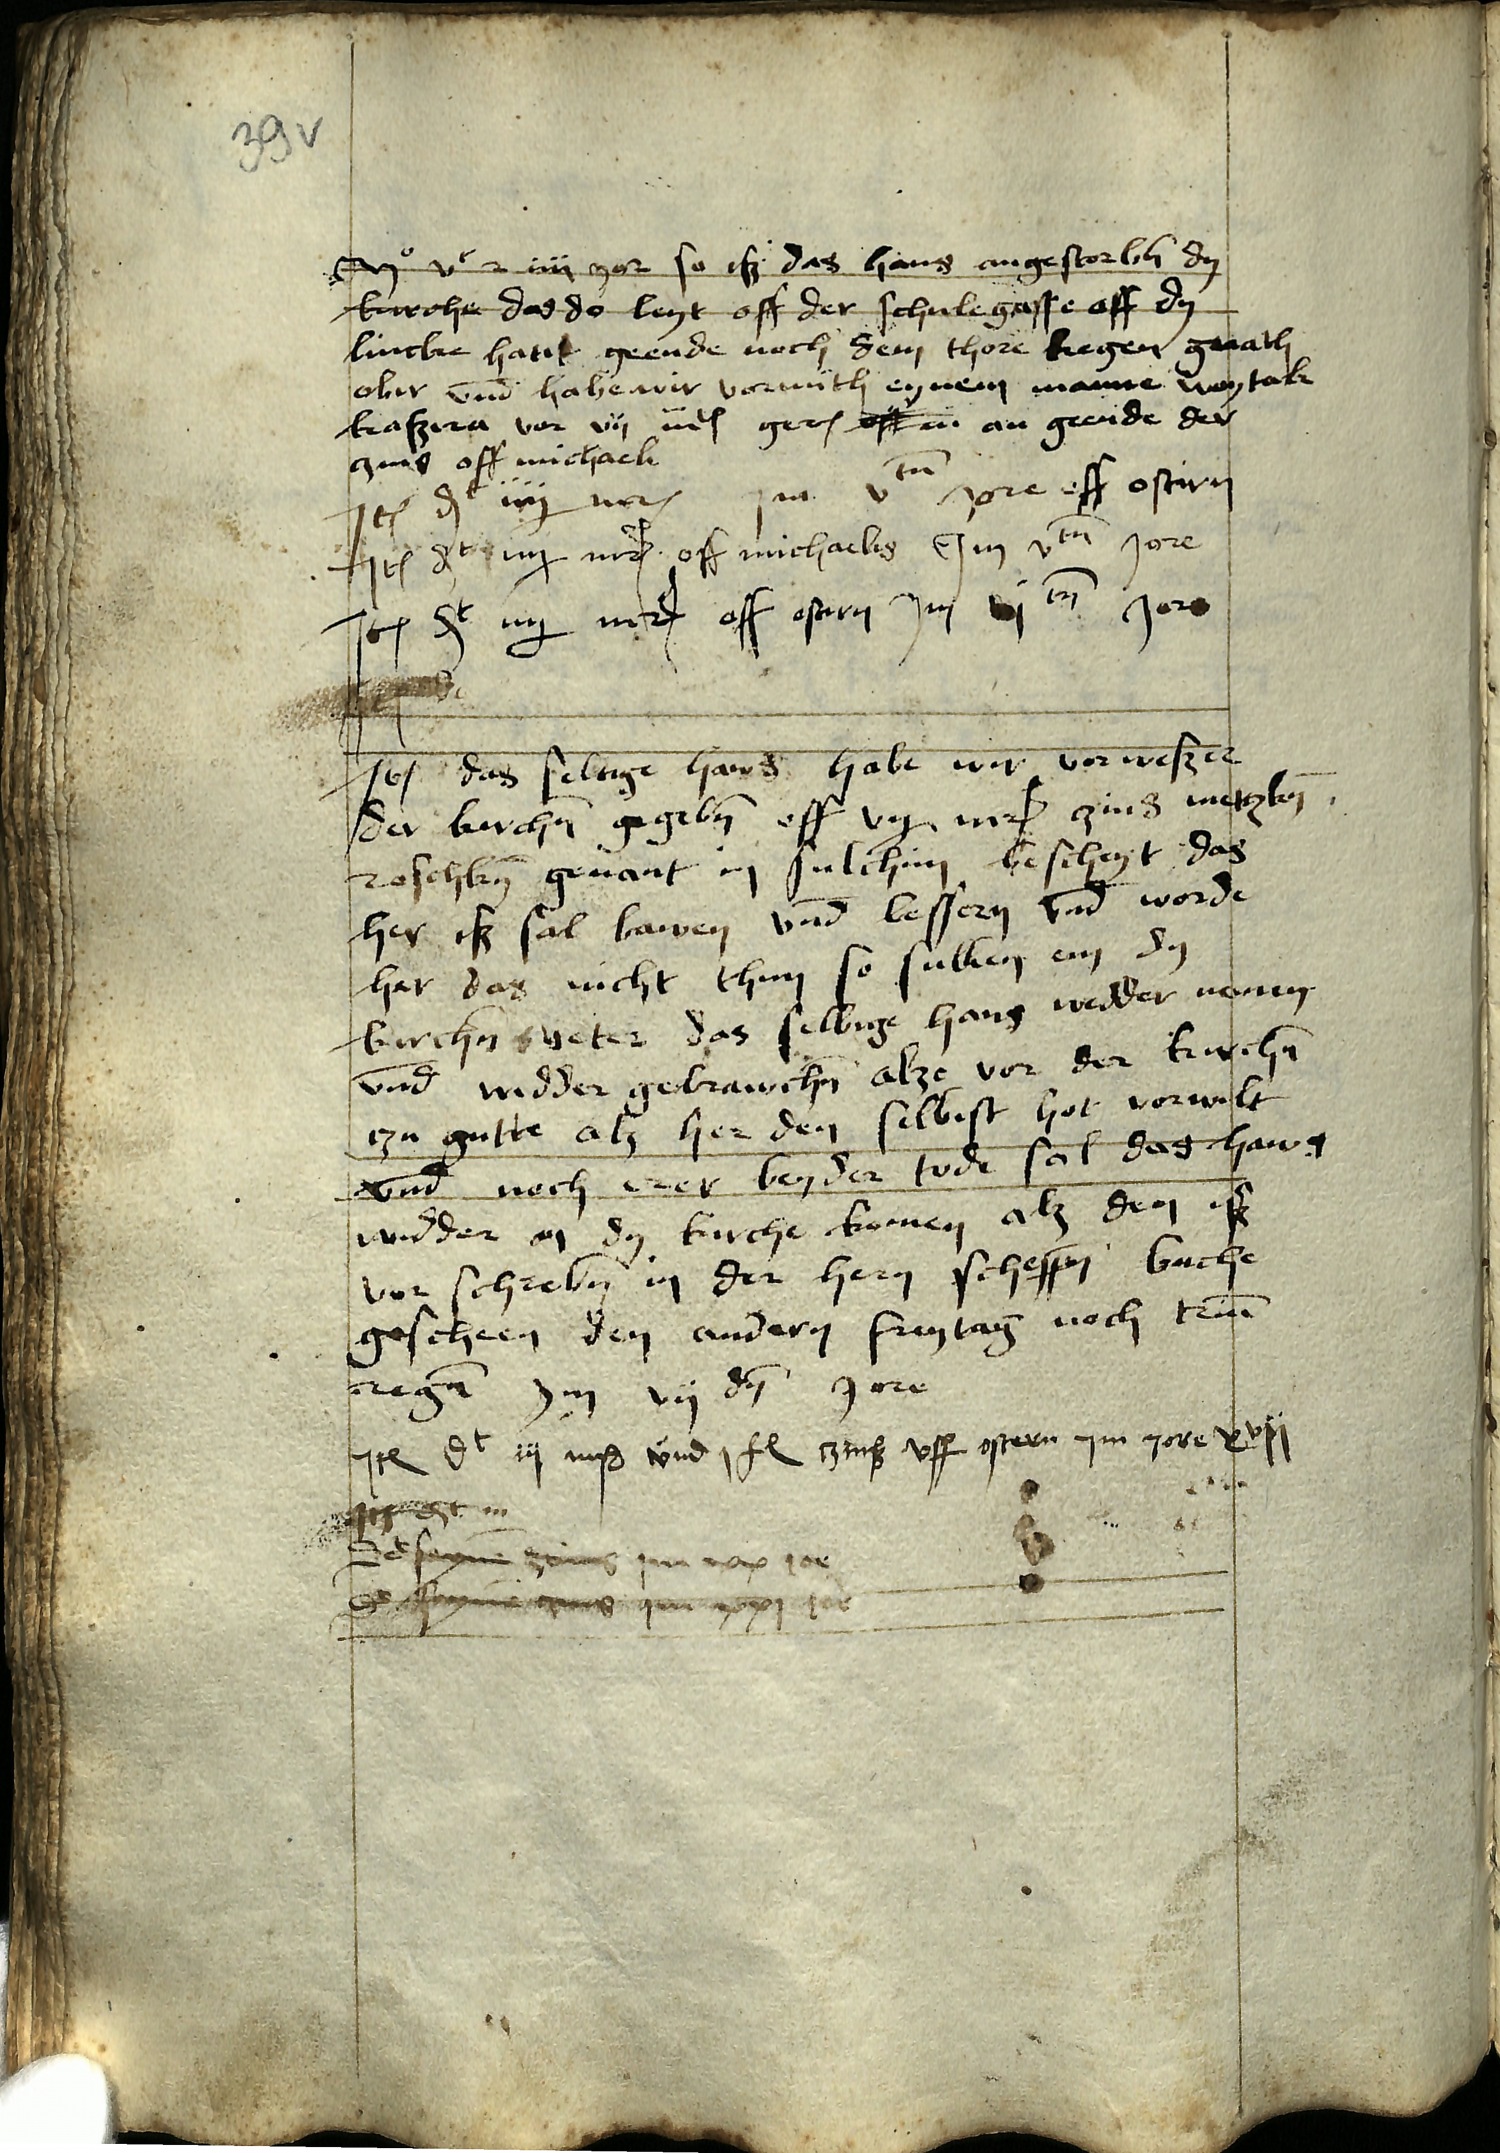 39v
Mo vc r iiii yor so isz das haus angestorbn dy
kirche das do leyt off der schulegasse off dy
lincke hant geende noch dem thore kegen
obir vnd habe wir vormith eynem manne woytak
vor vij gerȝ an geende der
czins off michaeli
Itȝ dt iiij mrȝ Im vtn Jore off ostirn
Itȝ dt iiij mrȝ off michaelis Im vtn Jore
Itȝ dt iiij mrȝ off ostirn Im vj tn Jore
Itȝ das selbige haws habe wir vorweszer
der kirchn gegebn off vij mrȝ zins metzkn
roschkn genant in sulchim bescheyt das
her isz sal bawen vnd bessern vnd worde
her das nicht thun so sullen em dy
kirchn veter das selbige haus wedder nemen
vnd widder gebrawchn alze vor der kirchn
czu gutte alz her den selbist hot vorwilt
vnd noch erer beyder tode sal das haws
widder an dy kirche komen alz den isz
vor schrebn in der hern scheppn buche
gescheen den andern freytag noch trium
regn Im vij dn Jore
Itȝ dt iij mrȝ vnd j fl czinsz vff ostern Im Jore xvij
Itȝ dt iii
dt seyne zins im xx jor
dt seyne zins im xxj jor